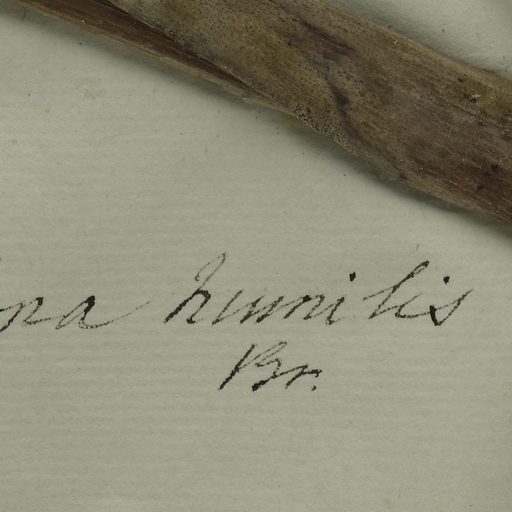 na humilis
Br.